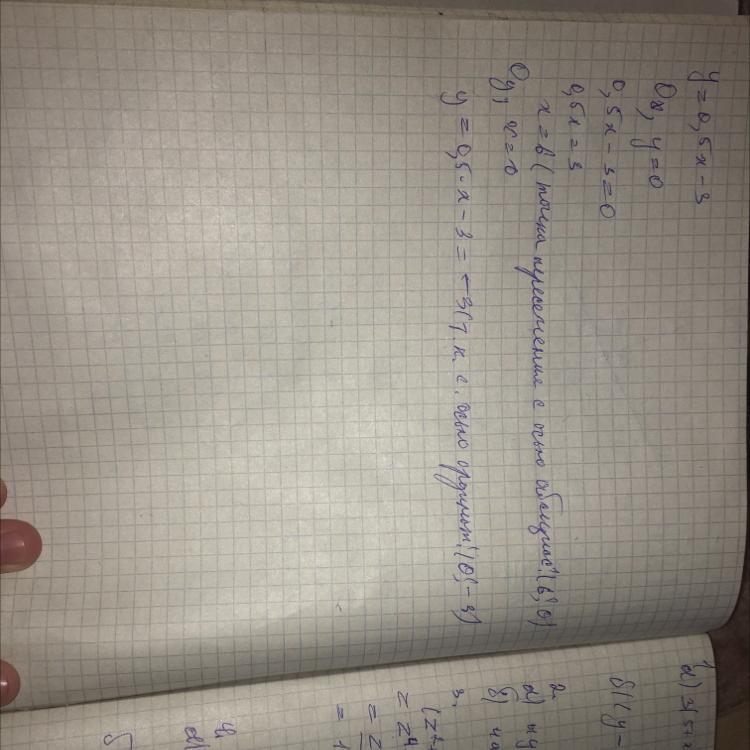 y = 0,5x - 3
Ox, y = 0
0,5x - 3 = 0
0,5x = 3
x = 6 (точка пересечения с осью абсцисс) (6;0)
Oy, x = 0
y = 0,5·x - 3 = -3 (т. п. с. осью ординат) (0;-3)
1
а) 3(5+
б) (y -
2.
а)
б)
3.
= z⁴
= 1
4
а)
б